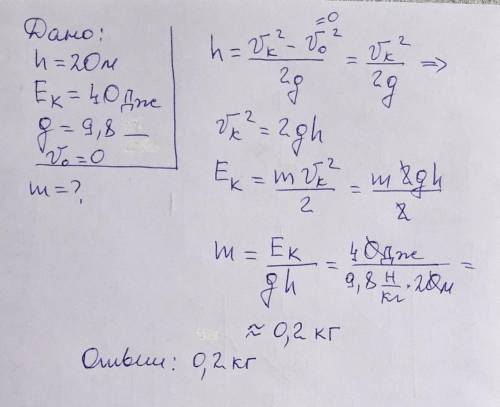 Дано:
h = 20м
Eк = 40 Дж
g = 9,8
v₀ = 0
m = ?
h = (vк² - v₀²)/2g = vк²/2g ⇒
=0
vк² = 2gh
Eк = m vк²/2 = m 2gh/2
m = Eк/gh = 40 Дж/(9,8 Н/кг · 20м) =
≈ 0,2 кг
Ответ: 0,2 кг